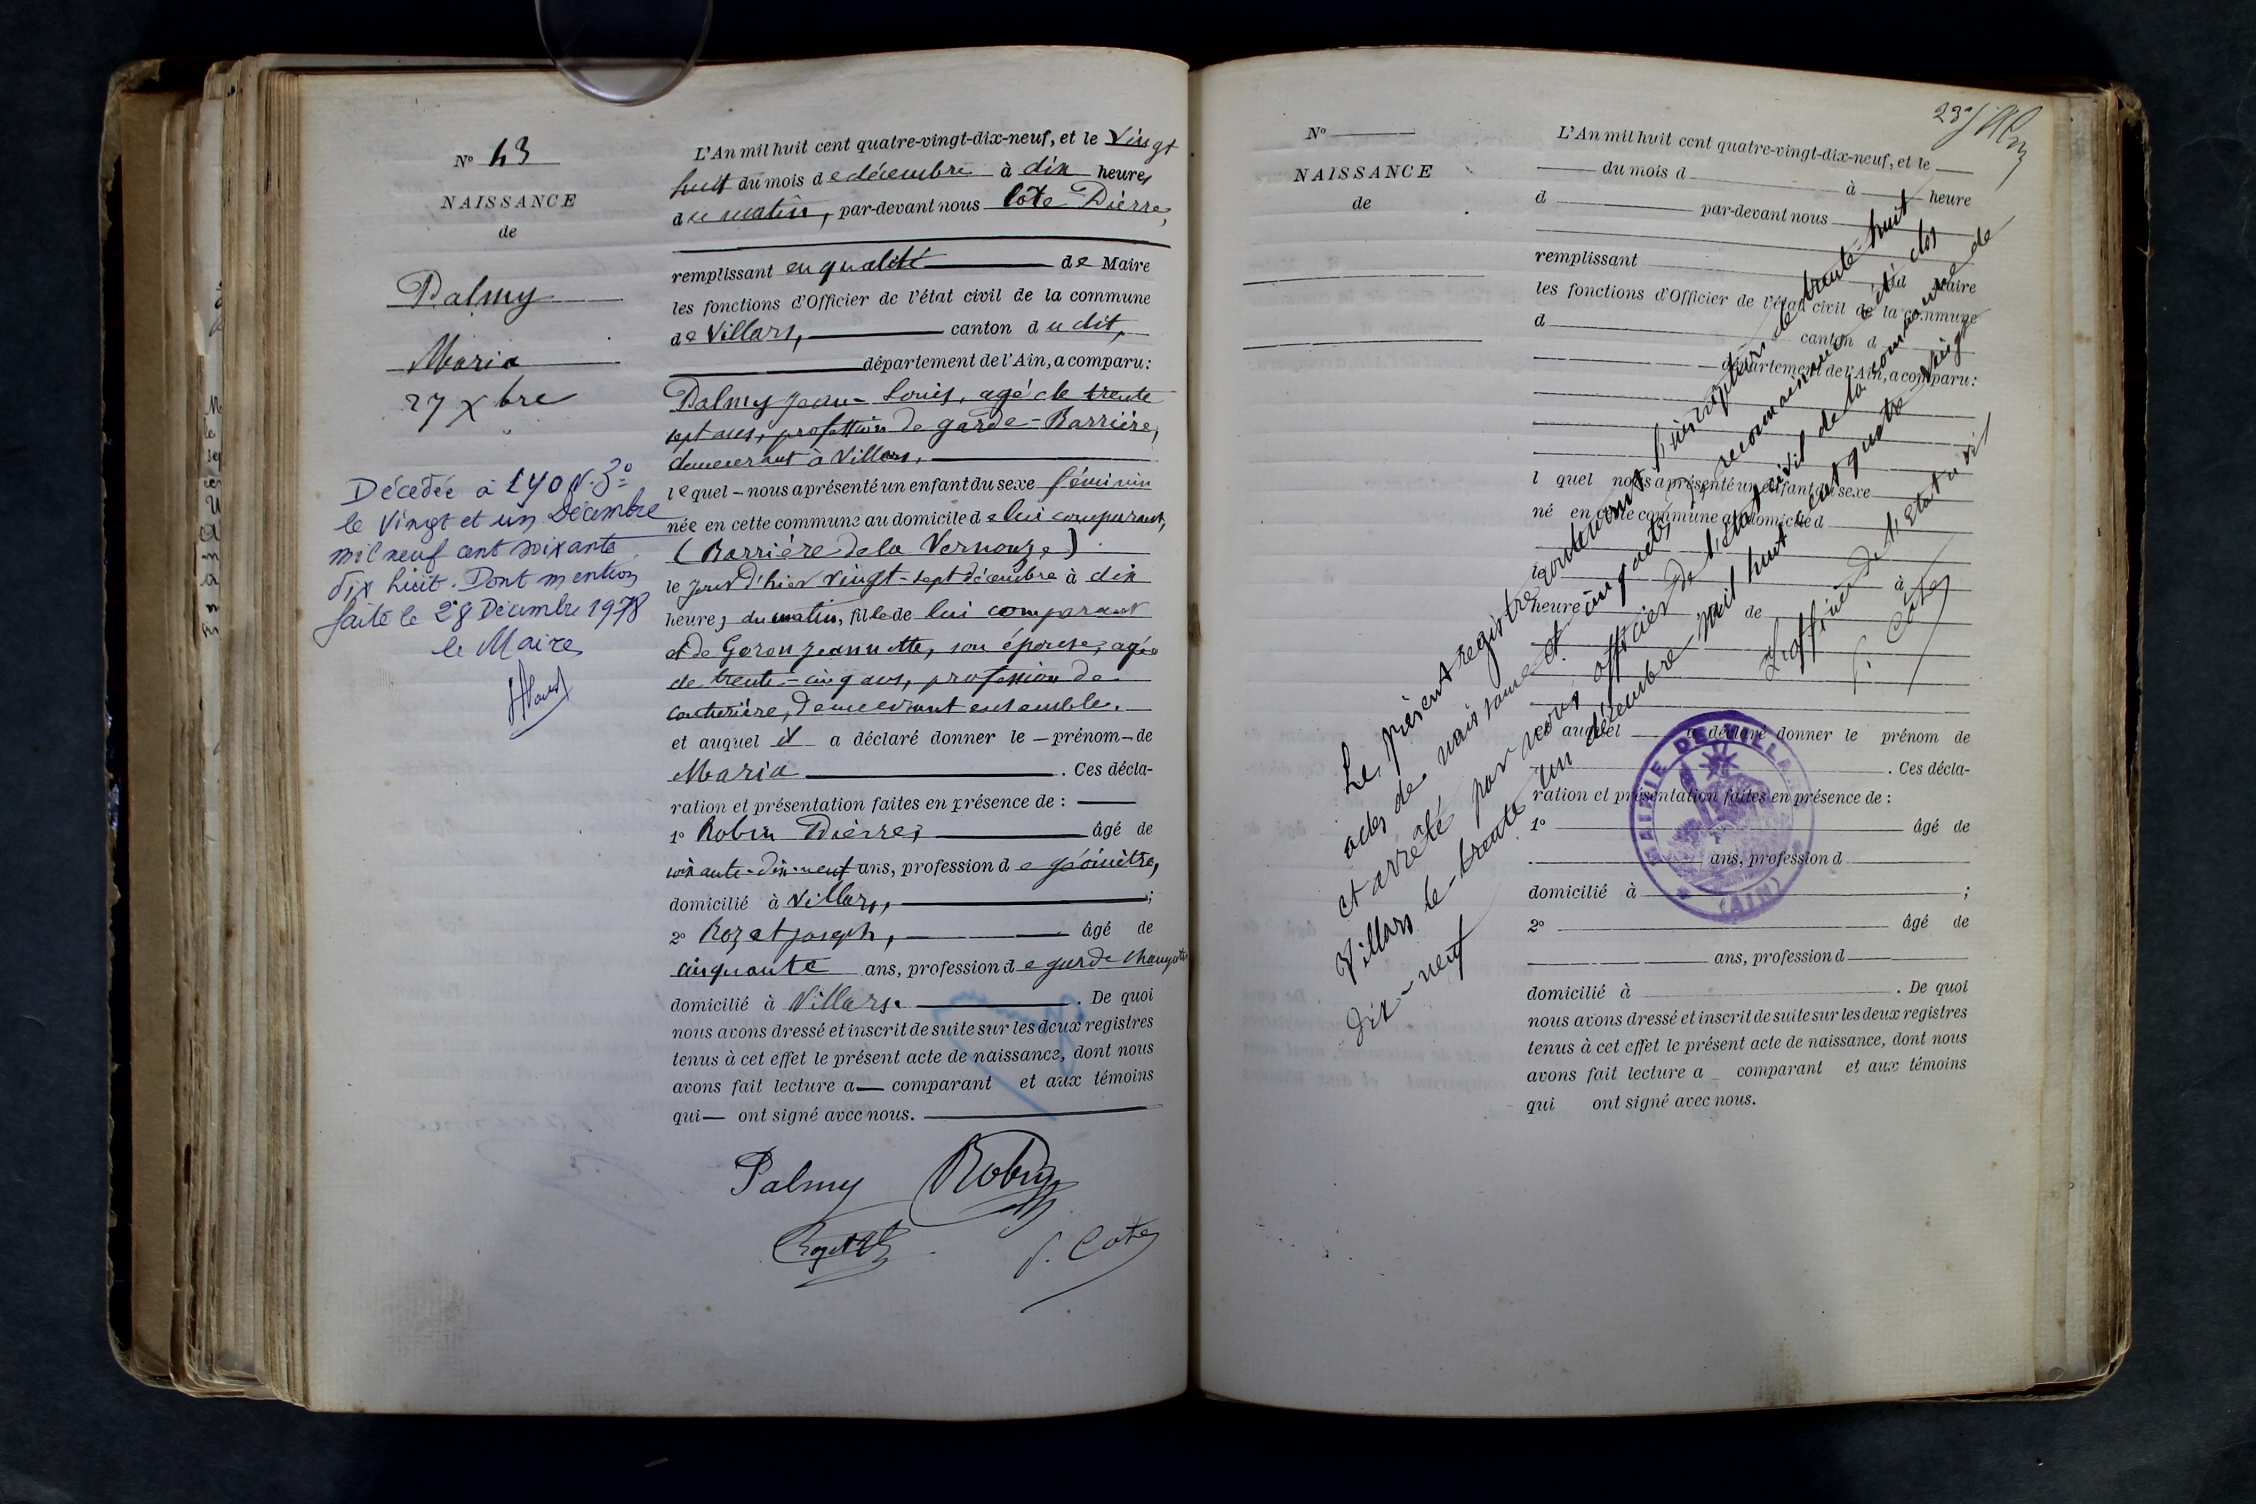 Nº 43
NAISSANCE
de
Palmy
Maria
27 Xbre
Décédée à LYON. 3º
le Vingt et un Décembre
mil neuf cent soixante
dix huit. Dont mention
faite le 28 Décembre 1978
le Maire
L'An mil huit cent quatre-vingt-dix-neuf, et le Vingt
huit du mois de décembre à dix heures
du matin, par-devant nous Côte Pierre,
remplissant en qualité de Maire
les fonctions d'Officier de l'état civil de la commune
de Villars, canton du dit,
département de l'Ain, a comparu:
Palmy Jean-Louis, agé de trente
sept ans, profession de garde-Barrière,
demeurant à Villars,
lequel - nous a présenté un enfant du sexe féminin
née en cette commune au domicile de lui comparant,
(Barrière de la Vernouze)
le jour d'hier vingt-sept décembre à dix
heures du matin, fille de lui comparant
et de Goron Jeannette, son épouse, agée
de trente-cinq ans, profession de
couturière, demeurant ensemble.
et auquel il a déclaré donner le - prénom - de
Maria . Ces décla-
ration et présentation faites en présence de :
1º Robin Pierre, âgé de
soixante-dix-neuf ans, profession de géomètre,
domicilié à Villars, ;
2º Rozet Joseph, âgé de
cinquante ans, profession de garde champêtre
domicilié à Villars. . De quoi
nous avons dressé et inscrit de suite sur les deux registres
tenus à cet effet le présent acte de naissance, dont nous
avons fait lecture a comparant et aux témoins
qui ont signé avec nous.
Palmy Robin
Rozet P. Cote
Nº
NAISSANCE
de
L'An mil huit cent quatre-vingt-dix-neuf, et le
du mois d à heure
d par-devant nous
remplissant d Maire
les fonctions d'Officier de l'état civil de la commune
d canton d
département de l'Ain, a comparu:
l quel nous a présenté un enfant du sexe
né en cette commune au domicile d
le à
heure de
et auquel a déclaré donner le prénom de
. Ces décla-
ration et présentation faites en présence de :
1º âgé de
ans, profession d
domicilié à ;
2º âgé de
ans, profession d
domicilié à . De quoi
nous avons dressé et inscrit de suite sur les deux registres
tenus à cet effet le présent acte de naissance, dont nous
avons fait lecture a comparant et aux témoins
qui ont signé avec nous.
Le présent registre contenant l'inscription de trente-huit
actes de naissance et cinq actes de reconnaissance a été clos
et arrêté par nous officier de l'état civil de la commune de
Villars le trente un décembre mil huit cent quatre vingt
dix-neuf
L'officier de l'Etat civil
P. Côte
MAIRIE DE VILLARS
(AIN)